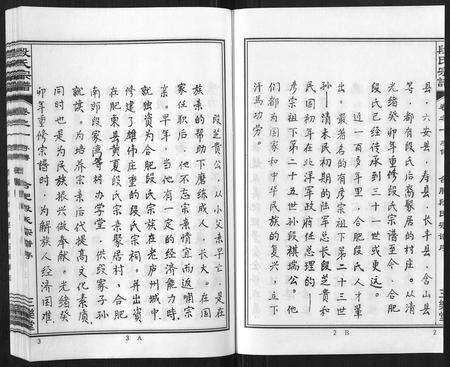 县、六安县、寿县、长丰县、含山县
等，都有段氏后裔聚居的村庄。从清
光绪卯年重修段氏宗谱至今，合肥
段氏已经传承到三十一世或更远。
近一百多年里，合肥段氏人才辈
出，最著名的有彦宗祖下第二十三世
孙——清末民初期的陆军总长段芝贵和
民国初年在北洋军政府任总理的——
彦宗祖下第二十五世孙段棋瑞公。他
们都为国家和中华民族的复兴，立下
汗马功劳。
2 B
2
段芝贵公，从小父亲早亡，是在
族亲的帮助下磨练成人、长大。在国
家任职后，他不忘宗亲情宜而返哺宗
亲。早年，当他有一定的经济能力时，
就独资为合肥段氏宗族在老庐州城中
修建了雄伟庄重的段氏宗祠。并出资
在肥东县黄夏段氏宗亲聚居村，合肥
南郊段家湾等村办学堂，供段家子孙
就读。为培养宗亲后代提高文化素质，
同时也是为民族振兴做奉献。光绪癸
卯年重修宗谱时，为解族人经济困难，
段氏宗谱
合肥段氏宗谱序
三乐堂
3 A
3